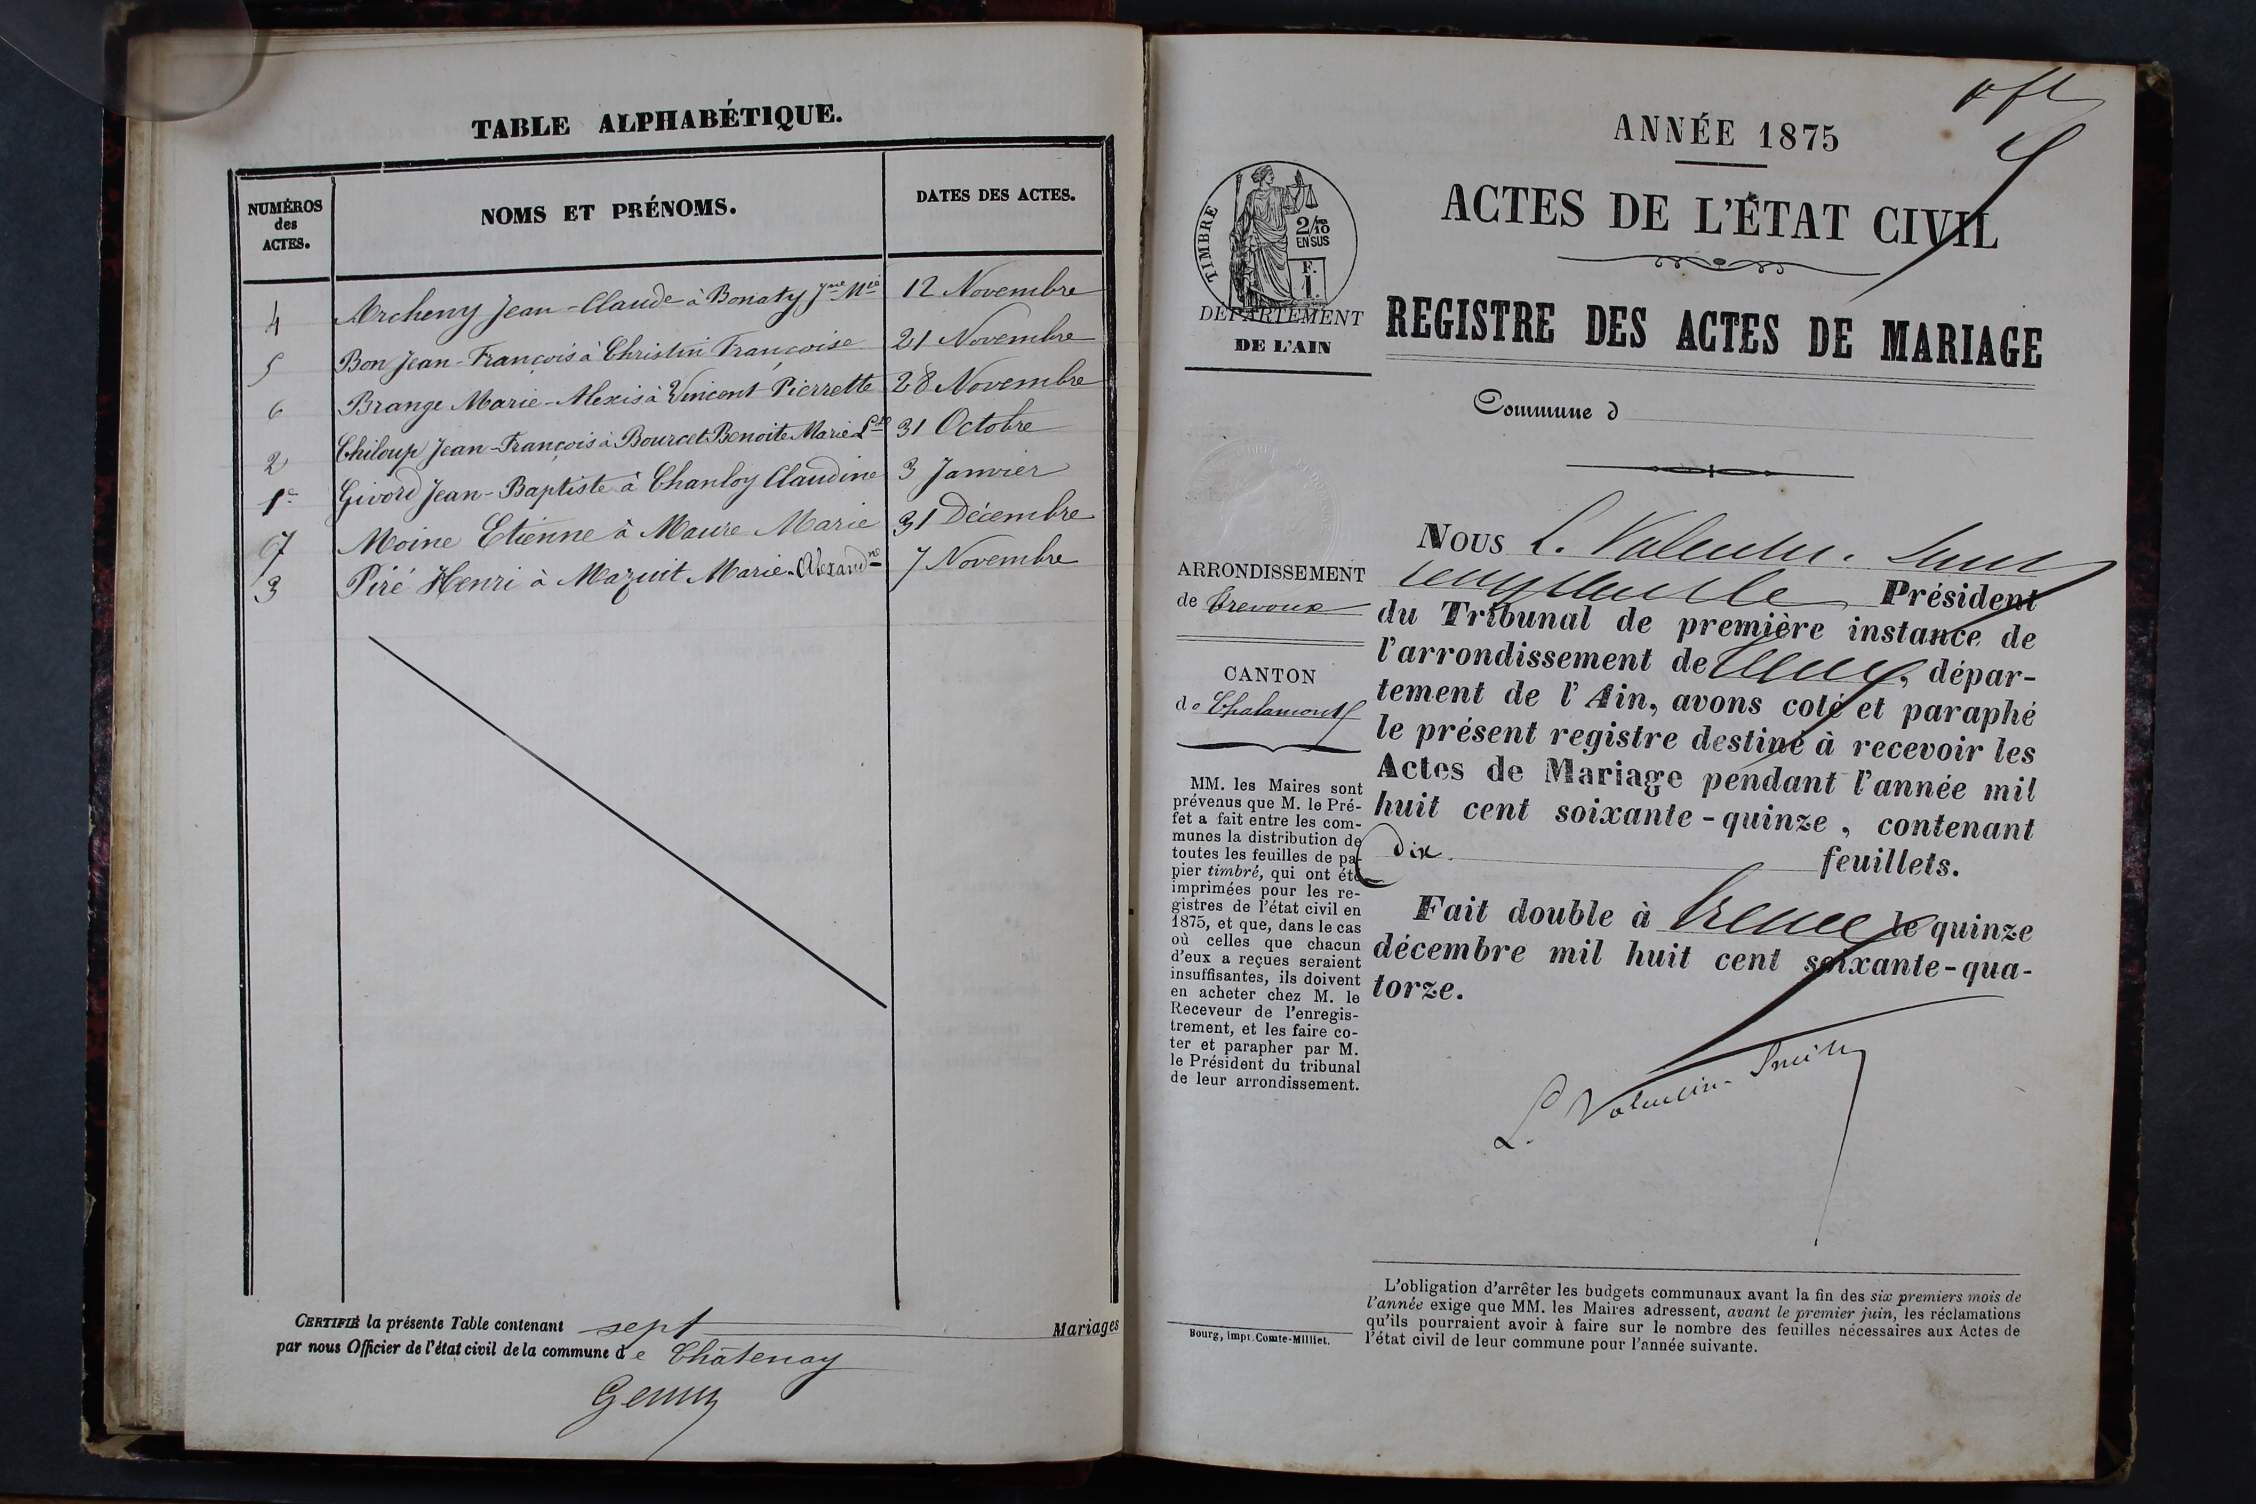 TABLE ALPHABÉTIQUE.
NUMÉROS
des
ACTES.
NOMS ET PRÉNOMS.
DATES DES ACTES.
4 Archeny Jean-Claude à Bonaty Jne Mie 12 Novembre
5 Bon Jean-François à Christin Françoise 21 Novembre
6 Brange Marie-Alexis à Vincent Pierrette 28 Novembre
2 Chiloup Jean-François à Bourcet Benoite Marie 31 Octobre
1e Givord Jean-Baptiste à Chanloy Claudine 3 Janvier
7 Moine Etienne à Maure Marie 31 Décembre
3 Piré Henri à Mazuit Marie-Alexandne 7 Novembre
CERTIFIÉ la présente Table contenant sept Mariages
par nous Officier de l'état civil de la commune de Châtenay
ANNÉE 1875
ACTES DE L'ÉTAT CIVIL
REGISTRE DES ACTES DE MARIAGE
TIMBRE
2/10
EN SUS
F.
1.
DÉPARTEMENT
DE L'AIN
Commune d
ARRONDISSEMENT
de Trevoux
CANTON
de Chalamont
MM. les Maires sont
prévenus que M. le Pré-
fet a fait entre les com-
munes la distribution de
toutes les feuilles de pa-
pier timbré, qui ont été
imprimées pour les re-
gistres de l'état civil en
1875, et que, dans le cas
où celles que chacun
d'eux a reçues seraient
insuffisantes, ils doivent
en acheter chez M. le
Receveur de l'enregis-
trement, et les faire co-
ter et parapher par M.
le Président du tribunal
de leur arrondissement.
Bourg, impr. Comte-Milliet.
NOUS L. Valentin-Smith
Président
du Tribunal de première instance de
l'arrondissement de , dépar-
tement de l'Ain, avons coté et paraphé
le présent registre destiné à recevoir les
Actes de Mariage pendant l'année mil
huit cent soixante-quinze, contenant
Dix feuillets.
Fait double à Trevoux le quinze
décembre mil huit cent soixante-qua-
torze.
L. Valentin-Smith
L'obligation d'arrêter les budgets communaux avant la fin des six premiers mois de
l'année exige que MM. les Maires adressent, avant le premier juin, les réclamations
qu'ils pourraient avoir à faire sur le nombre des feuilles nécessaires aux Actes de
l'état civil de leur commune pour l'année suivante.